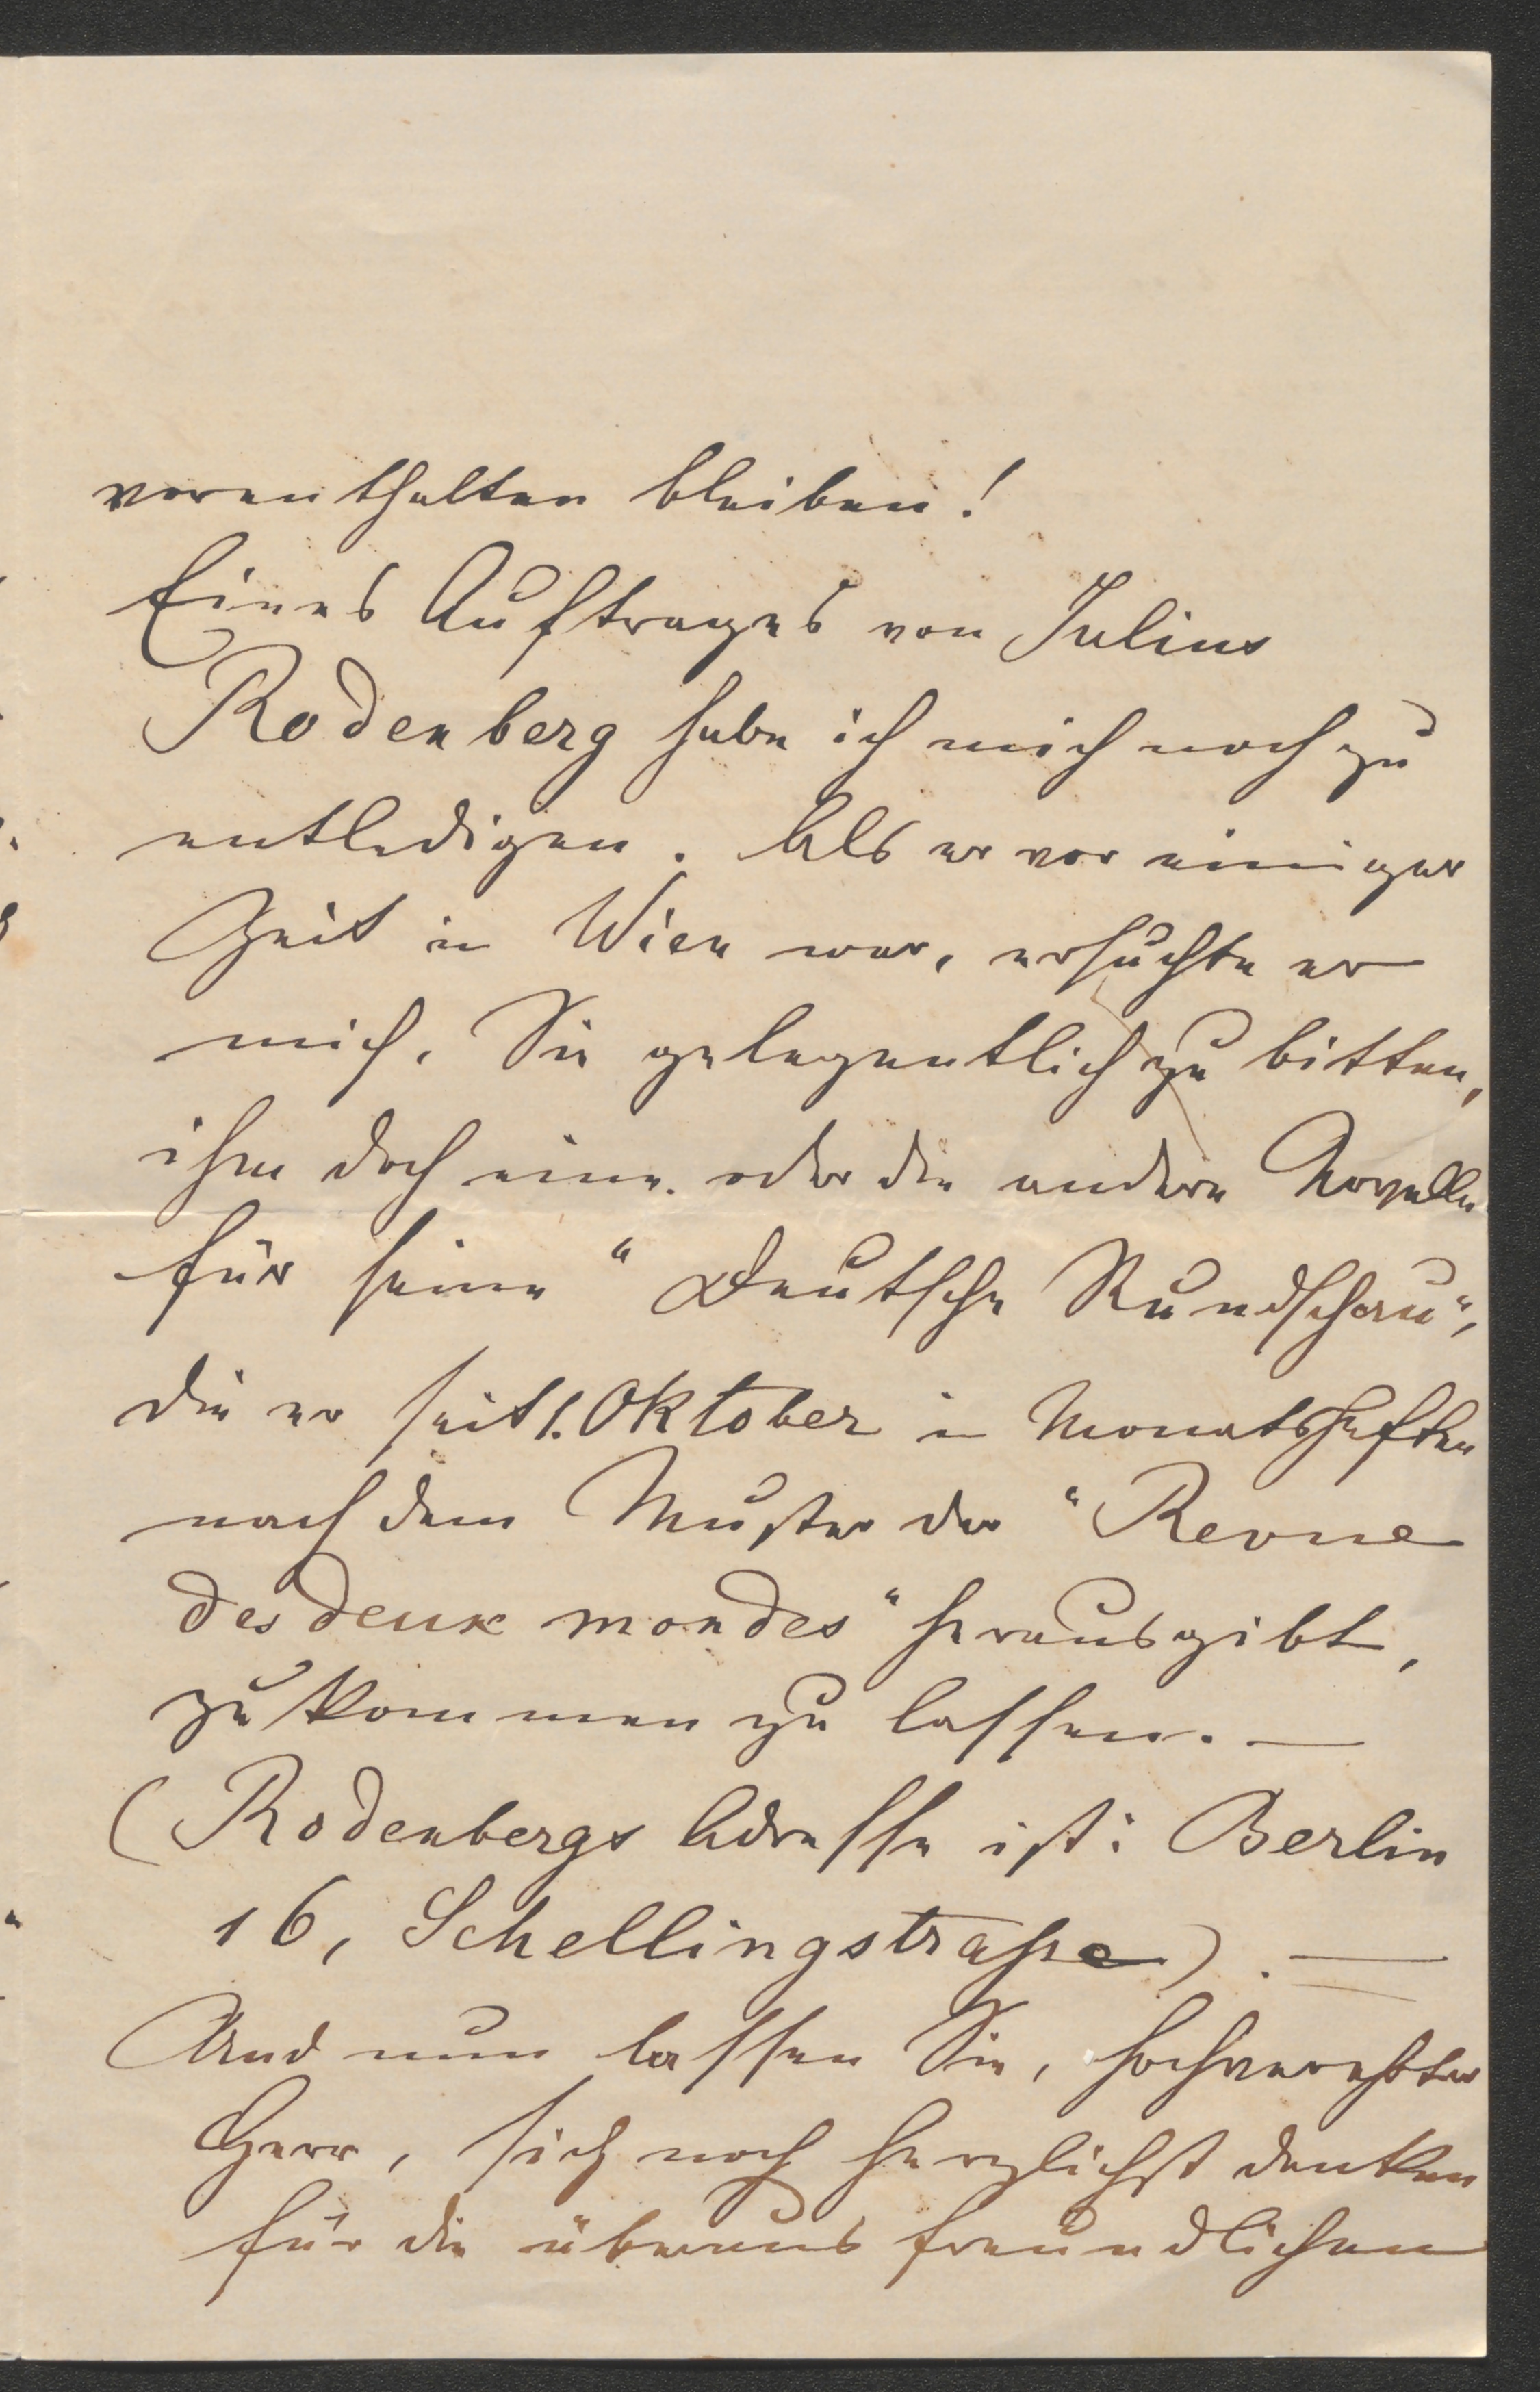 vorenthalten bleiben!
Eines Auftrages von Julius
Rodenberg habe ich mich noch zu
entledigen. Als er vor einiger
Zeit in Wien war, ersuchte er
mich, Sie gelegentlich zu bitten,
ihm doch eine oder die andere Novelle
für seine "Deutsche Rundschau",
die er seit 1. Oktober in Monatsheften
nach dem Muster der "Revue
des deux mondes" herausgibt,
zukommen zu lassen. —
(Rodenbergs Adresse ist: Berlin
16, Schellingstraße). —
Und nun lassen Sie, hochverehrter
Herr, sich noch herzlichst danken
für die überaus freundlichen